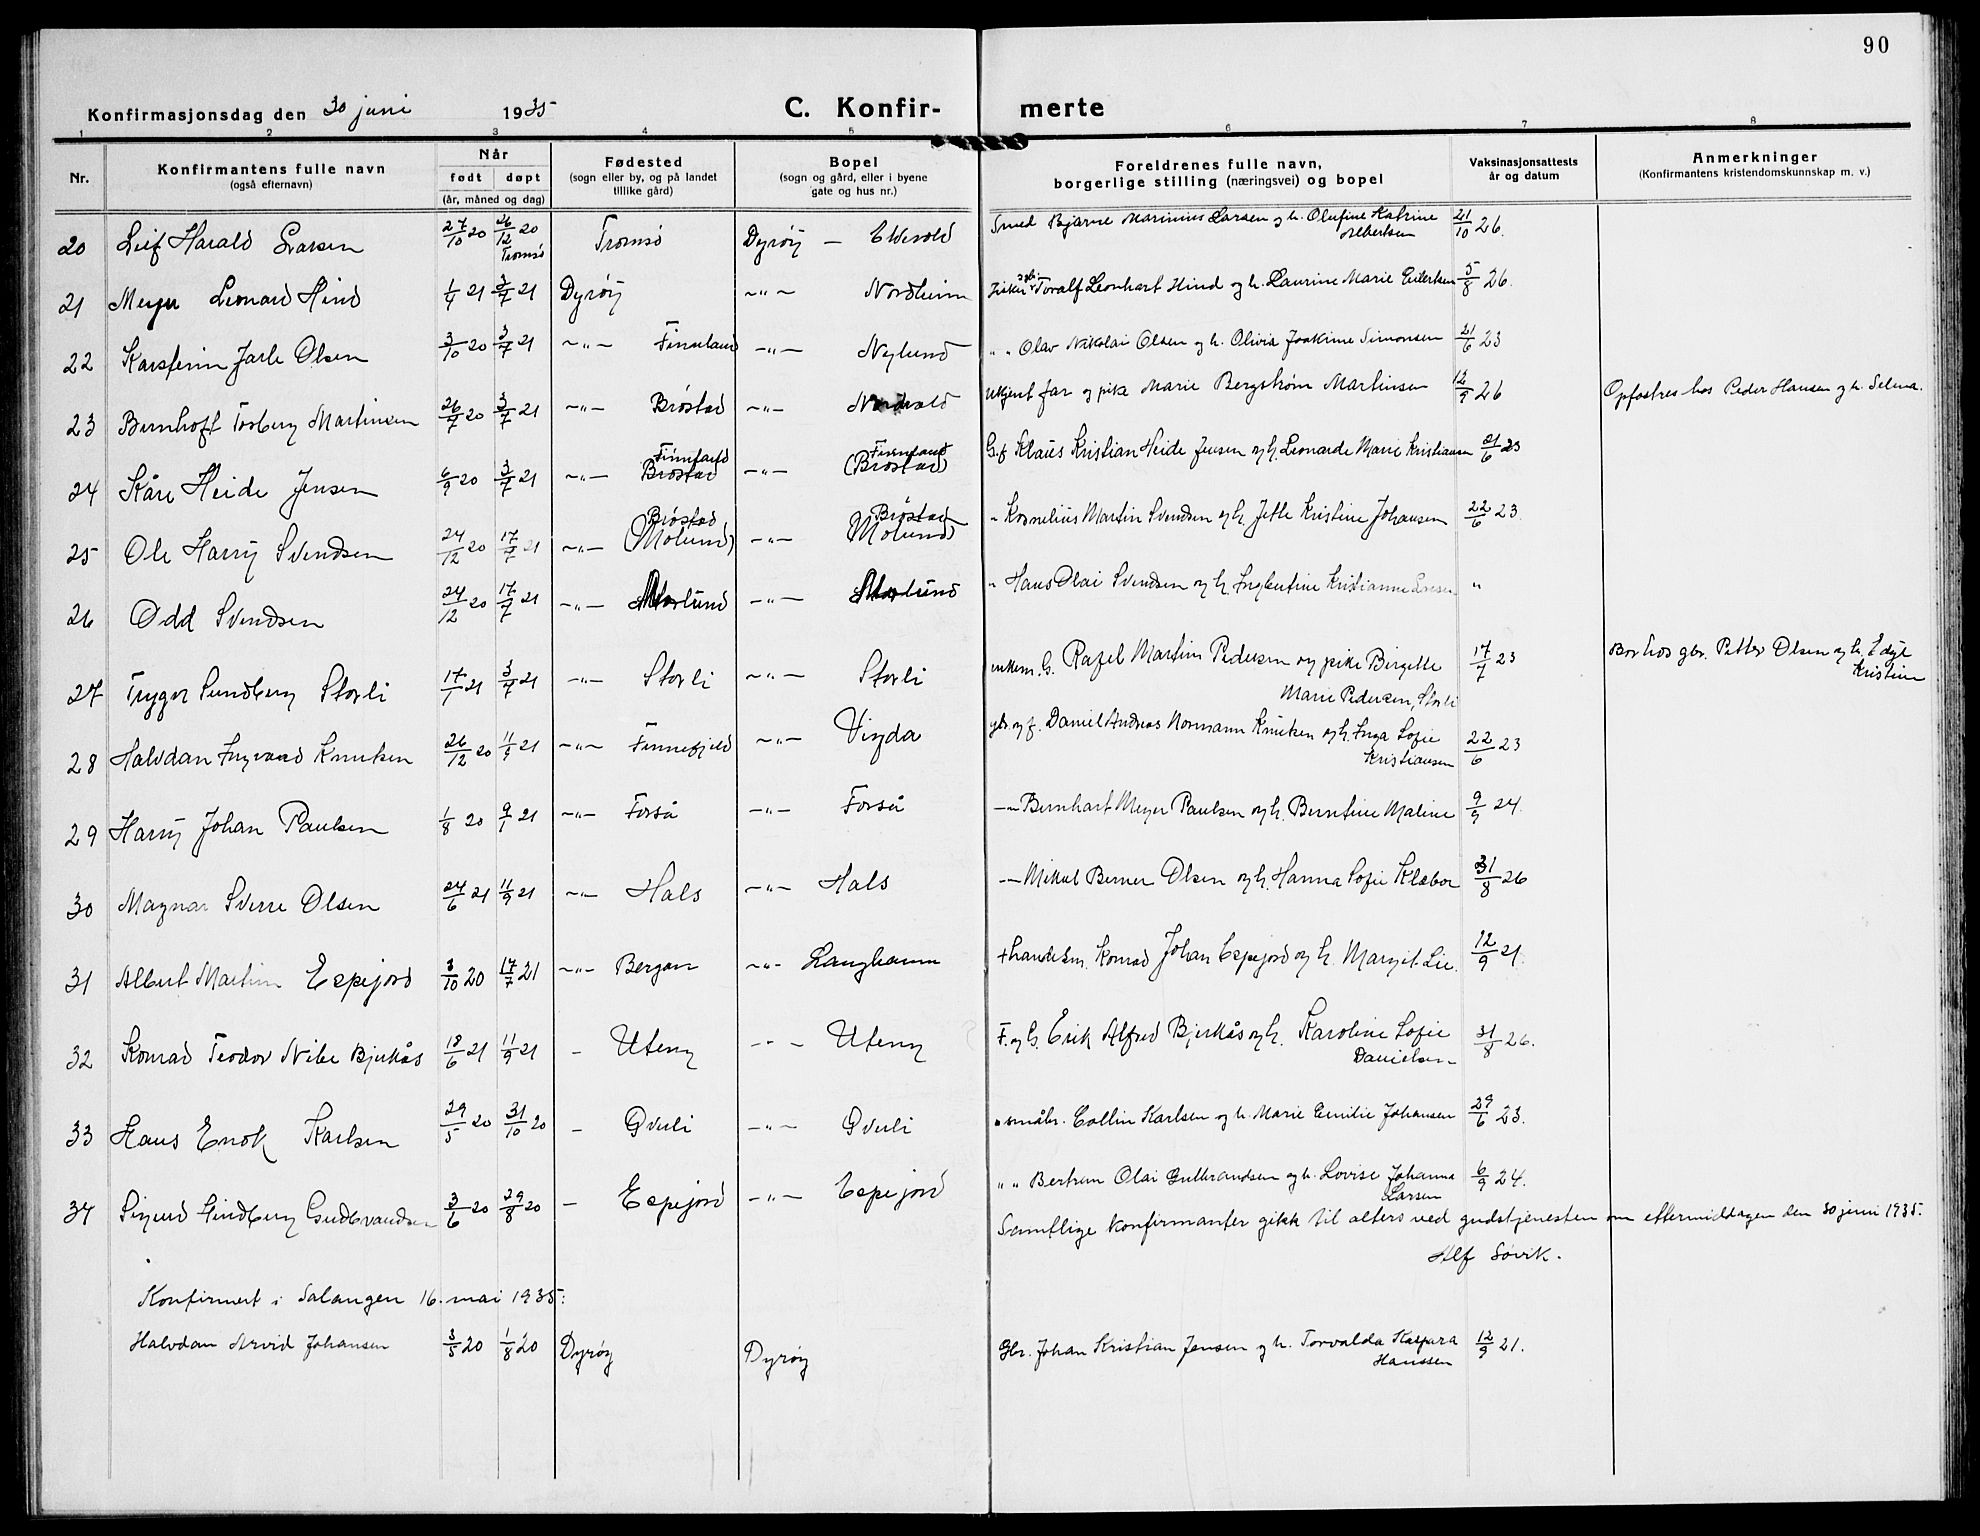 90
Konfirmasjonsdag den 30 juni 1935
C. Konfir- merte
1 2 3 4 5 6 7 8
Nr.
Konfirmantens fulle navn
(også efternavn)
Når
født døpt
(år, måned og dag)
Fødested
(sogn eller by, og på landet
tillike gård)
Bopel
(sogn og gård, eller i byene
gate og hus nr.)
Foreldrenes fulle navn,
borgerlige stilling (næringsvei) og bopel
Vaksinasjonsattests
år og datum
Anmerkninger
(Konfirmantens kristendomskunnskap m. v.)
20 Leif Harald Larsen 27/10 20 26/12 20 Tromsø Tromsø Dyrøy — Elvevold Smed Bjarne Marinius Larsen og h. Olufine Katrine Albertsen 21/10 26.
21 Meyer Leonard Hind 1/4 21 3/7 21 Dyrøy -"- Nordheim Fisker Toralf Leonhart Hind og h. Laurine Marie Eilertsen 5/8 26.
22 Karsten Jarle Olsen 3/10 20 3/7 21 -"- Finnland -"- Nylund " " Olav Nikolai Olsen og h. Olivia Joakime Simonsen 21/6 23
23 Bernhoft Torberg Martinsen 26/7 20 3/7 21 -"- Brøstad -"- Nordvold Ukjent far og pike Marie Bergstrøm Martinsen 12/9 26 Opfostres hos Peder Hansen og h. Selma.
24 Kåre Heide Jensen 6/9 20 3/7 21 -"- Finnland Brøstad -"- Finnland (Brøstad) G.f Klaus Kristian Heide Jensen og h. Leonarde Marie Kristiansen 21/6 23
25 Ole Harry Svendsen 24/12 20 17/7 21 -"- Brøstad (Molund) -"- Brøstad (Molund) " Kornelius Martin Svendsen og h. Jette Kristine Johansen 22/6 23.
26 Odd Svendsen 24/12 20 17/7 21 -"- Morlund -"- Morlund " Hans Olai Svendsen og h. Ingbertine Kristianne "
27 Trygve Sundberg Storli 17/1 21 3/7 21 -"- Storli -"- Storli unkem. G. Rafel Martin Pedersen og pike Birgette Marie Pedersen, Storli 17/7 23 Bor hos gbr. Petter Olsen og h. Kristine
28 Halvdan Ingvard Knutsen 26/12 20 11/9 21 -"- Finnefjeld -"- Vinda gbr. og f. Daniel Andreas Normann Knutsen og h. Inga Sofie Kristiansen 22/6 23
29 Harry Johan Paulsen 1/8 20 9/1 21 -"- Forså -"- Forså -"- Bernhart Meyer Paulsen og h. Berntine Maline 9/9 24.
30 Magnar Sverre Olsen 24/6 21 11/9 21 -"- Hals -"- Hals -"- Mikal Berner Olsen og h. Hanna Sofie Klæbor 31/8 26
31 Albert Martin Espejord 3/10 20 17/7 21 -"- Bergan -"- Langhamn + handelsm. Konrad Johan Espejord og h. Margit Lie. 12/9 21.
32 Konrad Teodor Nibe Bjerkås 18/6 21 11/9 21 - Uteng -"- Uteng F. og G. Erik Alfred Bjerkås og h. Karoline Sofie Danielsen 31/8 26.
33 Hans Enok Karlsen 29/5 20 31/10 20 - Gverli -"- Gverli " småbr. Collin Karlsen og h. Marie Emilie Johansen 29/6 23.
34 Sigurd Lindberg Gudbrandsen 3/6 20 29/8 20 - Espejord -"- Espejord " " Bertrum Olai Gulbrandsen og h. Lovise Johanna Larsen 6/9 24.
Samtlige konfirmanter gikk til alters ved gudstjenesten om eftermiddagen den 30 juni 1935.
Alf Søvik.
Konfirmert i Salangen 16. mai 1935:
Halvdan Arvid Johansen 3/5 20 1/8 20 Dyrøy Dyrøy Gbr. Johan Kristian Jensen og h. Torvalda Kaspara Hanssen 12/9 21.